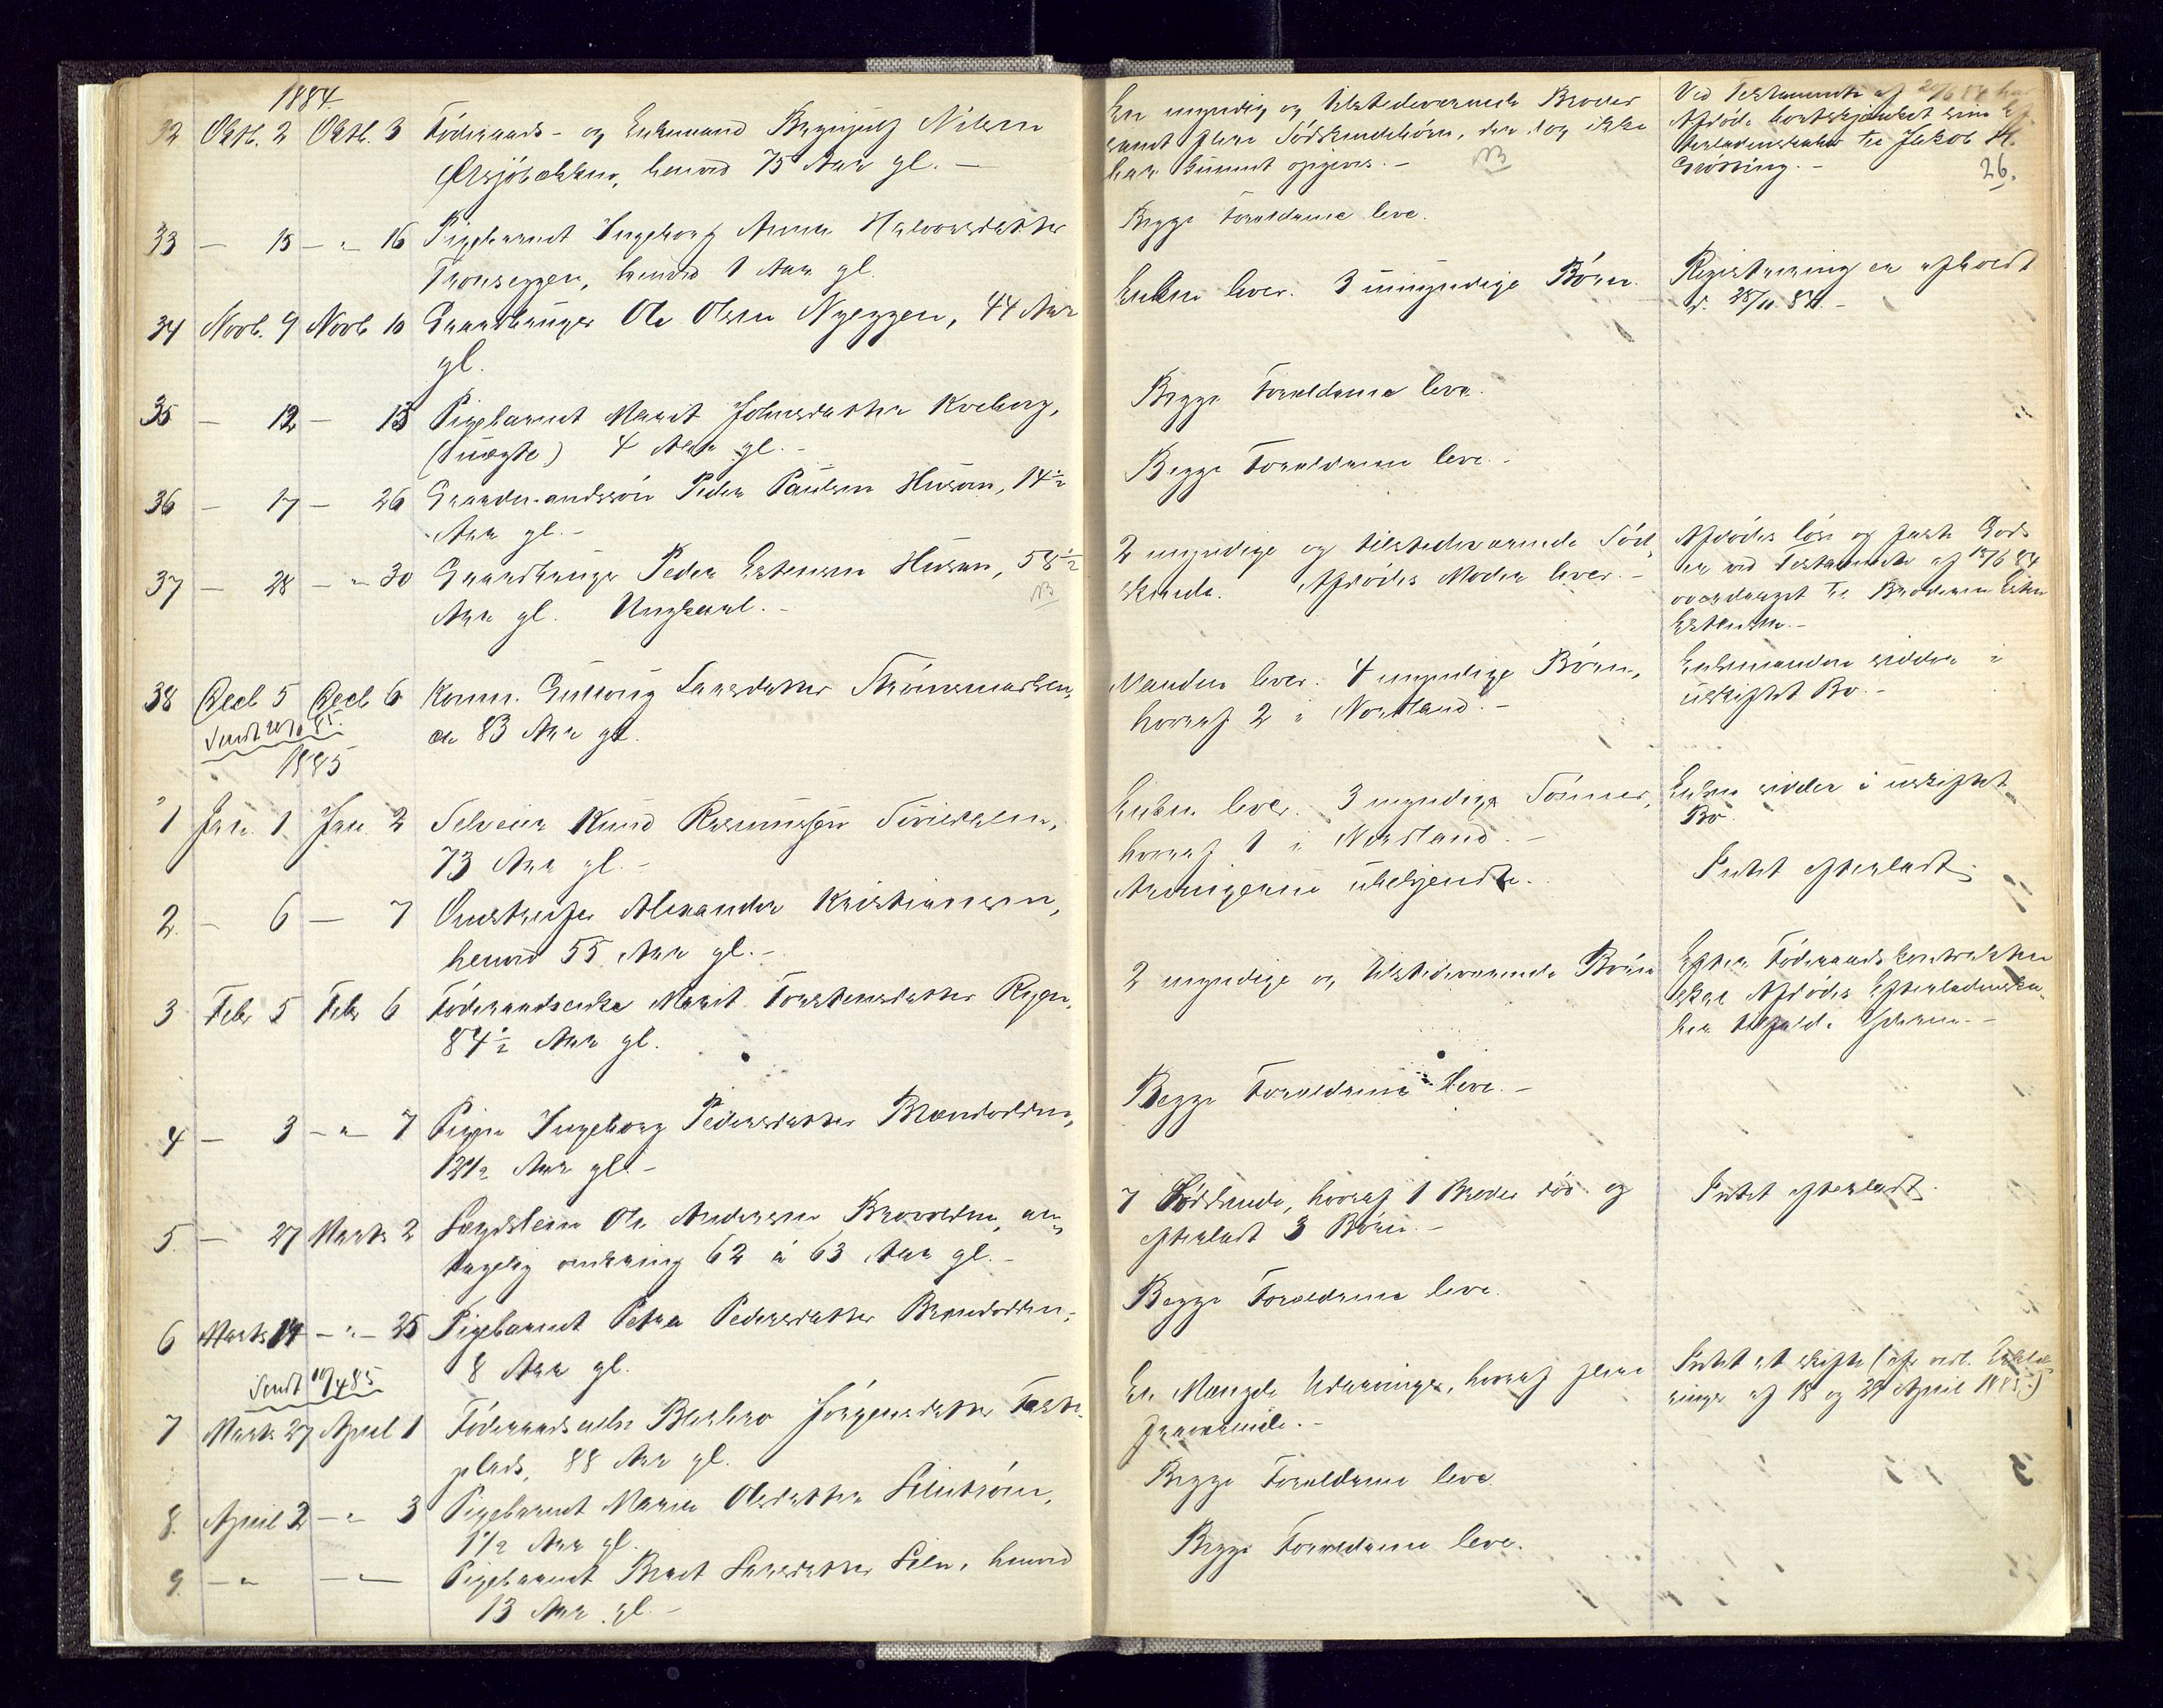 1884.
32 Oktb. 2 Oktb. 3 Föderaads- og Enkemand Brynjulf Nilsen
Ørsjöbakken, henved 75 Aar gl. —
33 — 15 — " — 16 Pigebarnet Ingeborg Anna Halvorsdatter
Tronseggen, henved 1 Aar gl.
34 Novb. 9 Novb 10 Gaardbruger Ole Olsen Nyeggen, 44 Aar
gl.
35 — 12 — 13 Pigebarnet Marit Johnsdatter Kveberg,
(uægte) 4 Aar gl. -
36 — 17 — 26 Gaardmandssön Peder Paulsen Husan, 14½
Aar gl. -
37 — 28 — " — 30 Gaardbruger Peder Estensen Husan, 58½
Aar gl. Ungkarl. - NB
38 Decb 5 Decb 6 Konen Gunhild Larsdatter
de 83 Aar gl.
Sendt 20/1 85.
1885
1 Jan. 1 Jan. 2 Selveier Knud Rasmussen
73 Aar gl. -
2. — 6 — 7 Omstreifer Alexander Kristiansen,
henved 55 Aar gl. -
3 Feb. 5 Feb. 6 Föderaadsenke Marit Torstensdatter
84½ Aar gl.
4 — 3 — " — 7 Pigen Ingeborg Pedersdatter Brandvolden,
12½ Aar gl. -
5. — 27 Marts 2 Lægdslem Ole Andersen an-
tagelig omkring 62 à 63 Aar gl. -
6 Marts 19 — " — 25 Pigebarnet Petra Pedersdatter Brandvolden,
8 Aar gl.
Sendt 10/4 85
7 Marts 27 April 1 Föderaadsenke Barbro Jörgensdatter
plads, 88 Aar gl.
8. April 2 — " — 3 Pigebarnet Maria Olsdatter
1½ Aar gl.
9. — " — " — Pigebarnet Marit Larsdatter henved
13 Aar gl. -
En myndig og tilstedeværende Broder
samt flere Södskendebörn, der dog ikke
har kunnet opgives. - NB
Begge Forældrene leve.
Enken lever. 3 umyndige Börn.
Begge Forældrene leve.
Begge Forældrene leve. -
2 myndige og tilstedeværende Söd-
skende. Afdödes Moder lever. -
Manden lever. 4 myndige Börn,
hvoraf 2 i Nordland. -
Enken lever. 3 myndige Sönner,
hvoraf 1 i Nordland. -
Arvingerne ubekjendte.
2 myndige og tilstedeværende Börn
Begge Forældrene leve. -
7 Södskende, hvoraf 1 Broder död og
efterladt 3 Börn. -
Begge Forældrene leve.
En Mængde Udarvinger, hvoraf flere
fraværende. -
Begge Forældrene leve.
Begge Forældrene leve.
Ved Testamente af 24/6 84 har
Afdöde bortskjænket sine Ef-
terladenskaber til Jakob H.
Grötting. -
26.
Registrering er afholdt
d. 28/11. 84. -
Afdödes löse og faste Gods
er ved Testamente af 17/6 84
overdraget til Broderen Esten
Estensen. -
Enkemanden sidder i
uskiftet Bo. -
Enken sidder i uskiftet
Bo.
Intet efterladt
Efter Föderaadskontrakten
skal Afdödes Efterladenska-
ber tilfalde -
Intet efterladt.
Intet at skifte (cfr vedl. Erklæ-
ringer af 18 og 24 April 1885.)